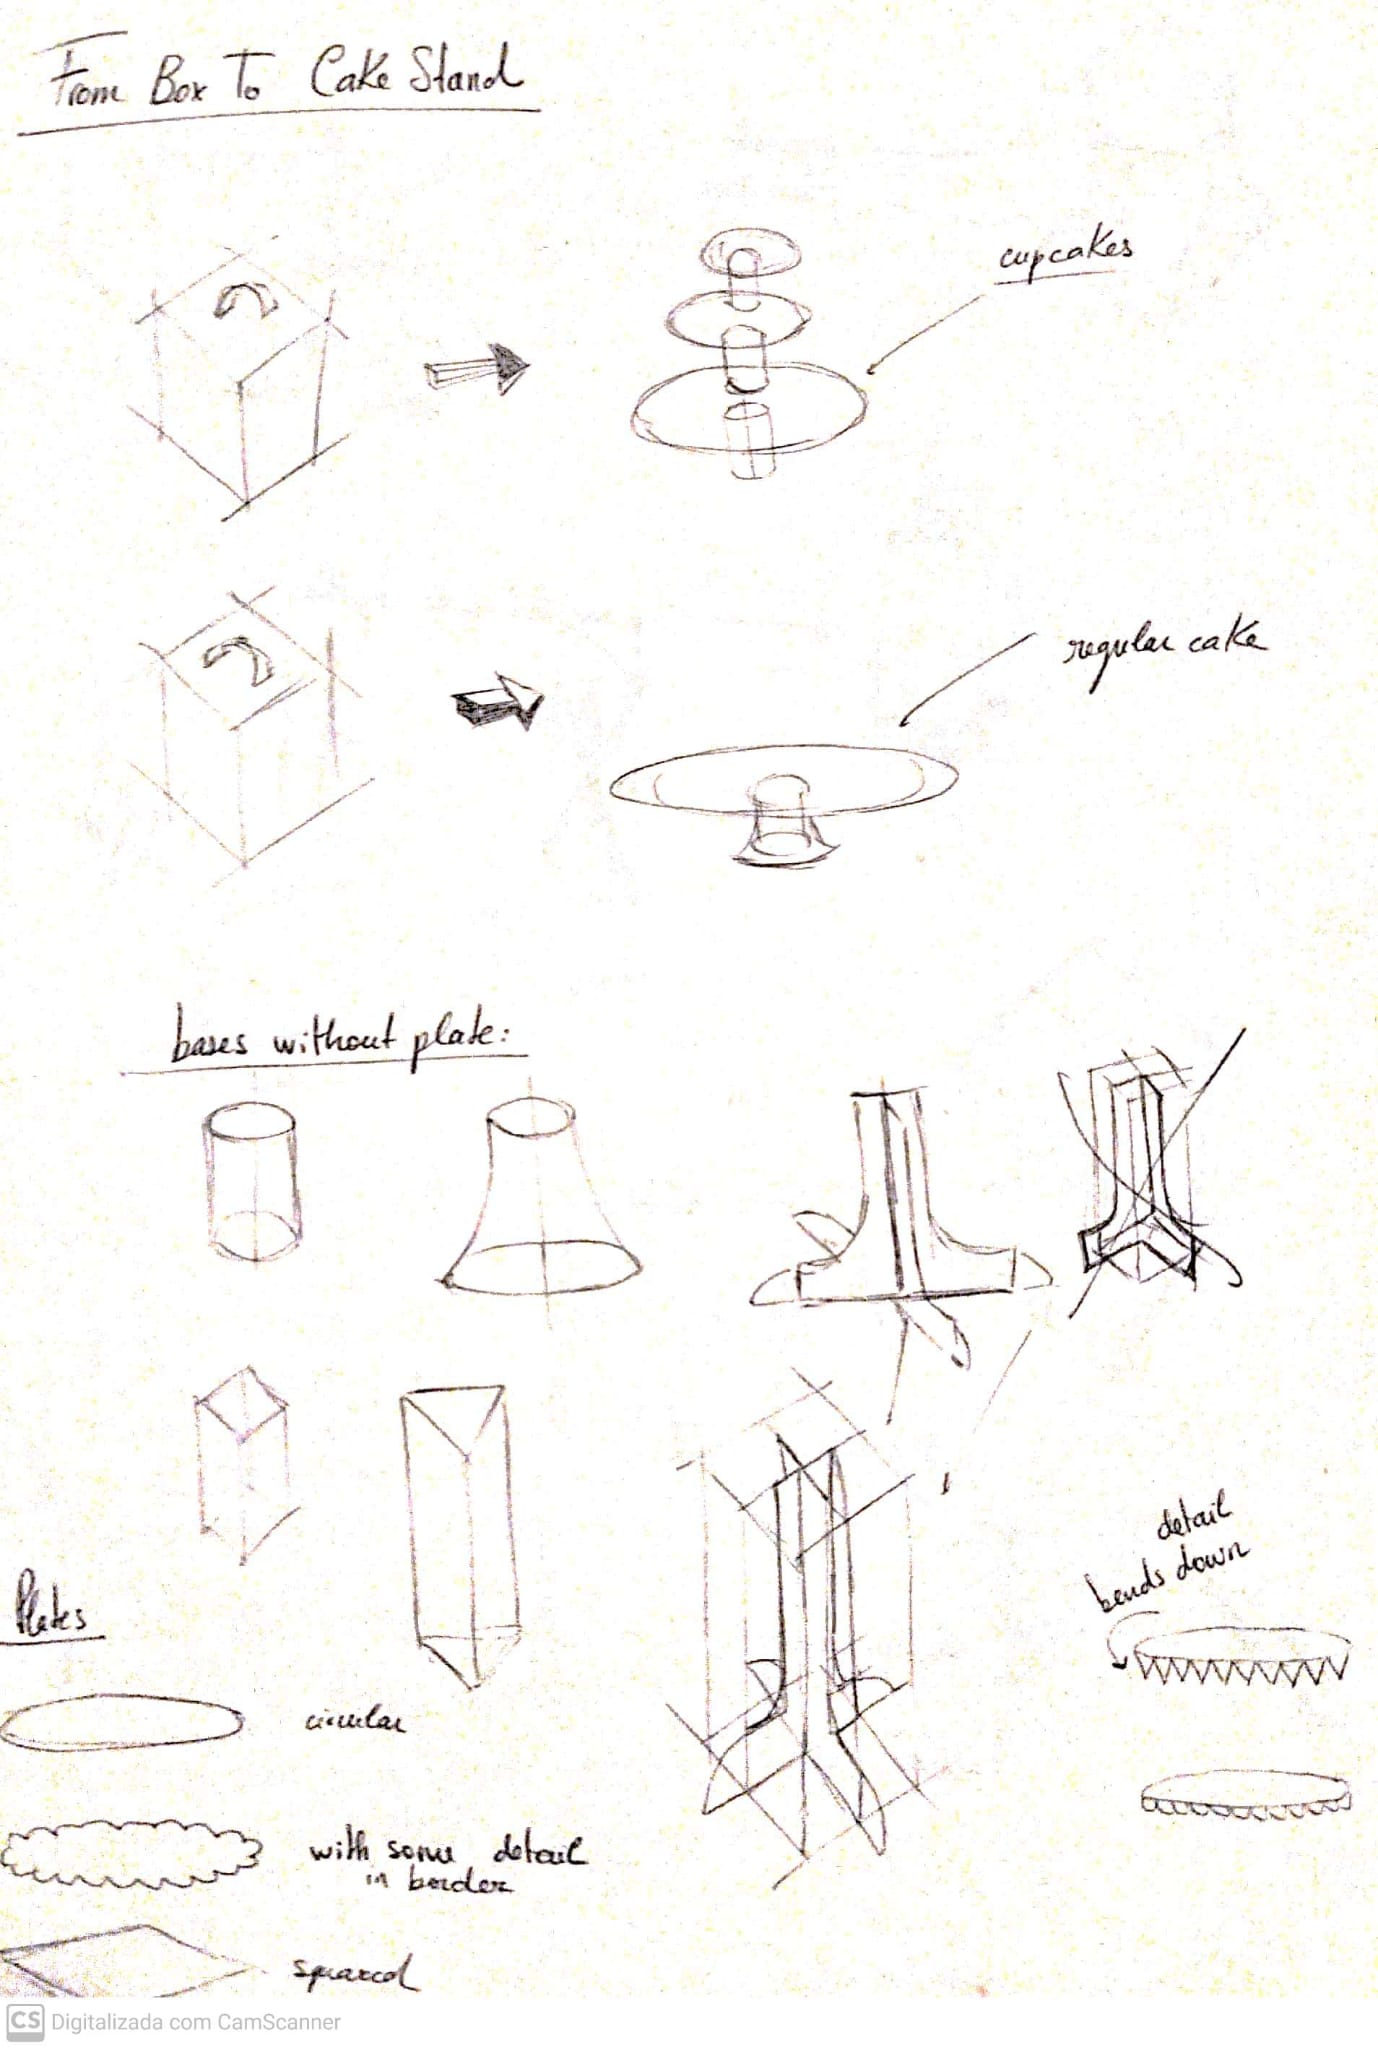 From Box To Cake Stand
cupcakes
regular cake
bases without plate:
detail
bends down
Plates
circular
with some detail
in border
squared
CS Digitalizada com CamScanner